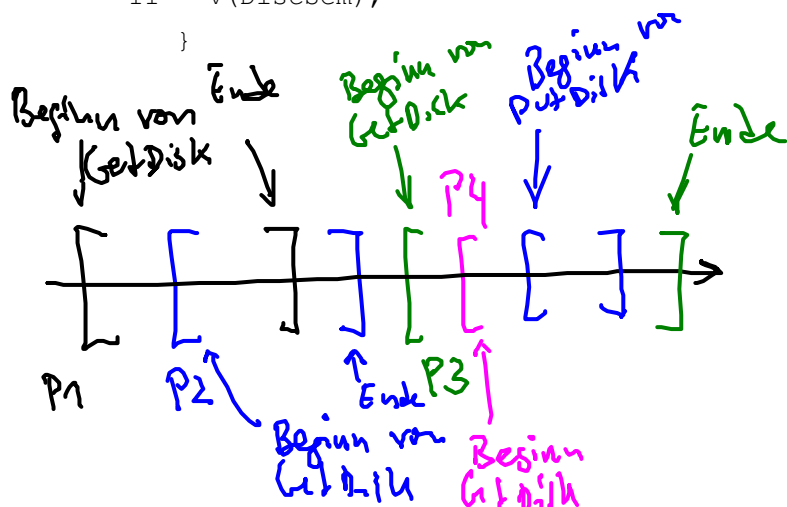 }
Beginn von
GetDisk
Ende
Beginn von
GetDisk
Beginn von
PutDisk
Ende
P4
P1
P2
Ende
P3
Beginn von
GetDisk
Beginn
GetDisk